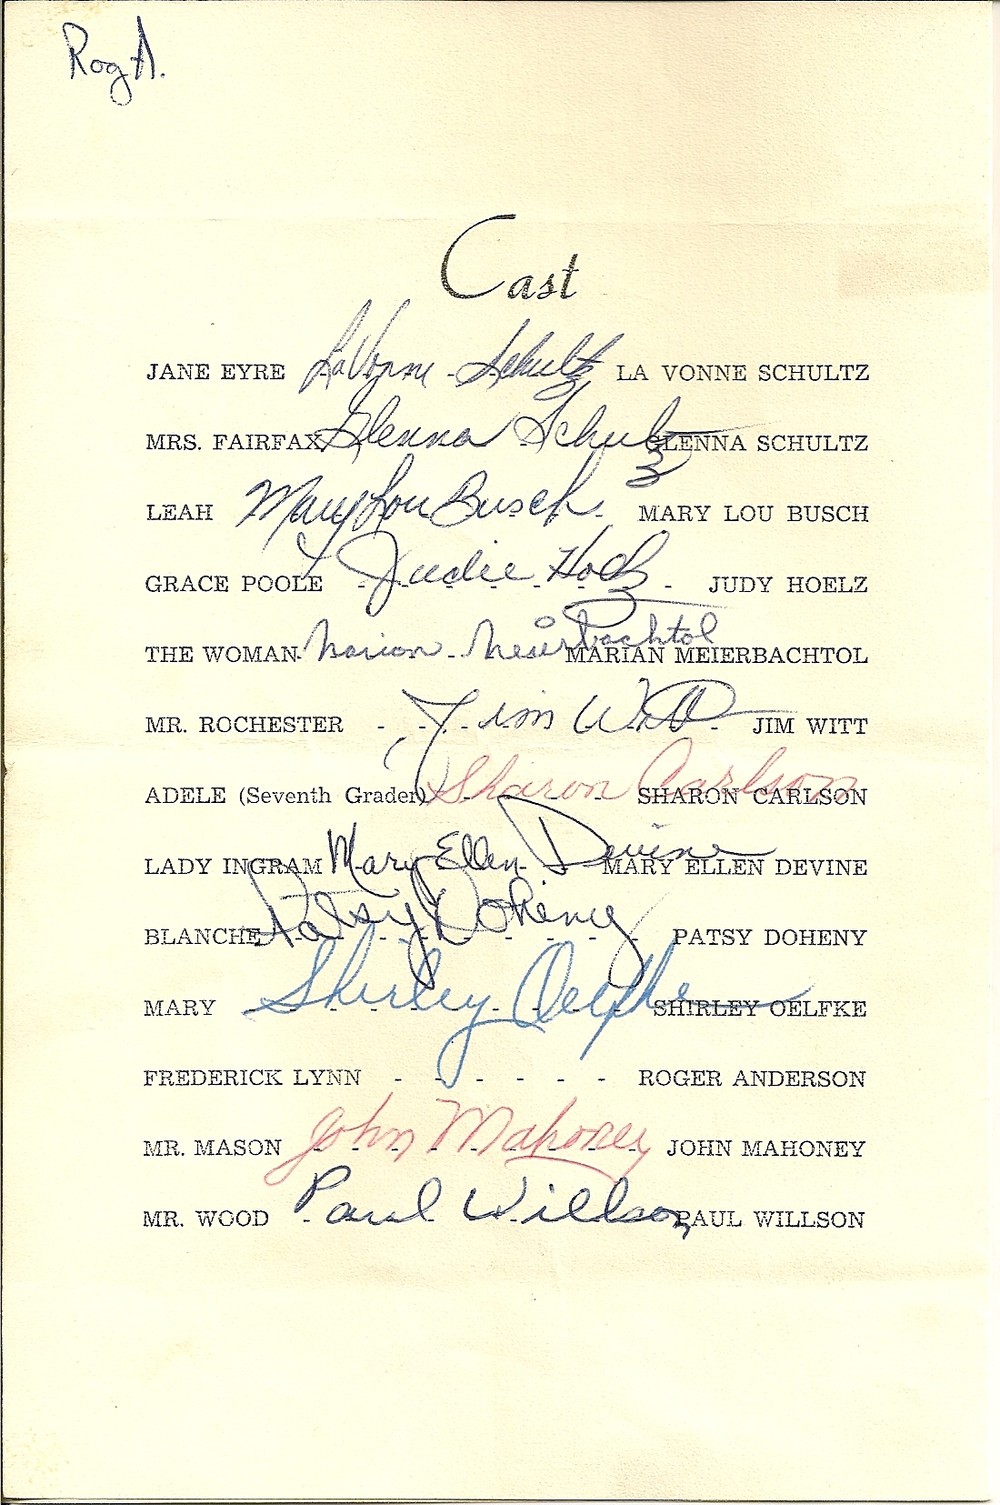 Rog A.
Cast
JANE EYRE LaVonne Schultz LA VONNE SCHULTZ
MRS. FAIRFAX Glenna Schultz GLENNA SCHULTZ
LEAH Mary Lou Busch MARY LOU BUSCH
GRACE POOLE - Judie Hoelz - JUDY HOELZ
THE WOMAN Marian Meierbachtol MARIAN MEIERBACHTOL
MR. ROCHESTER - Jim Witt - JIM WITT
ADELE (Seventh Grader) Sharon Carlson SHARON CARLSON
LADY INGRAM Mary Ellen Devine MARY ELLEN DEVINE
BLANCHE Patsy Doheny - PATSY DOHENY
MARY Shirley Oelfke SHIRLEY OELFKE
FREDERICK LYNN - - - - - - ROGER ANDERSON
MR. MASON John Mahoney JOHN MAHONEY
MR. WOOD - Paul Willson PAUL WILLSON